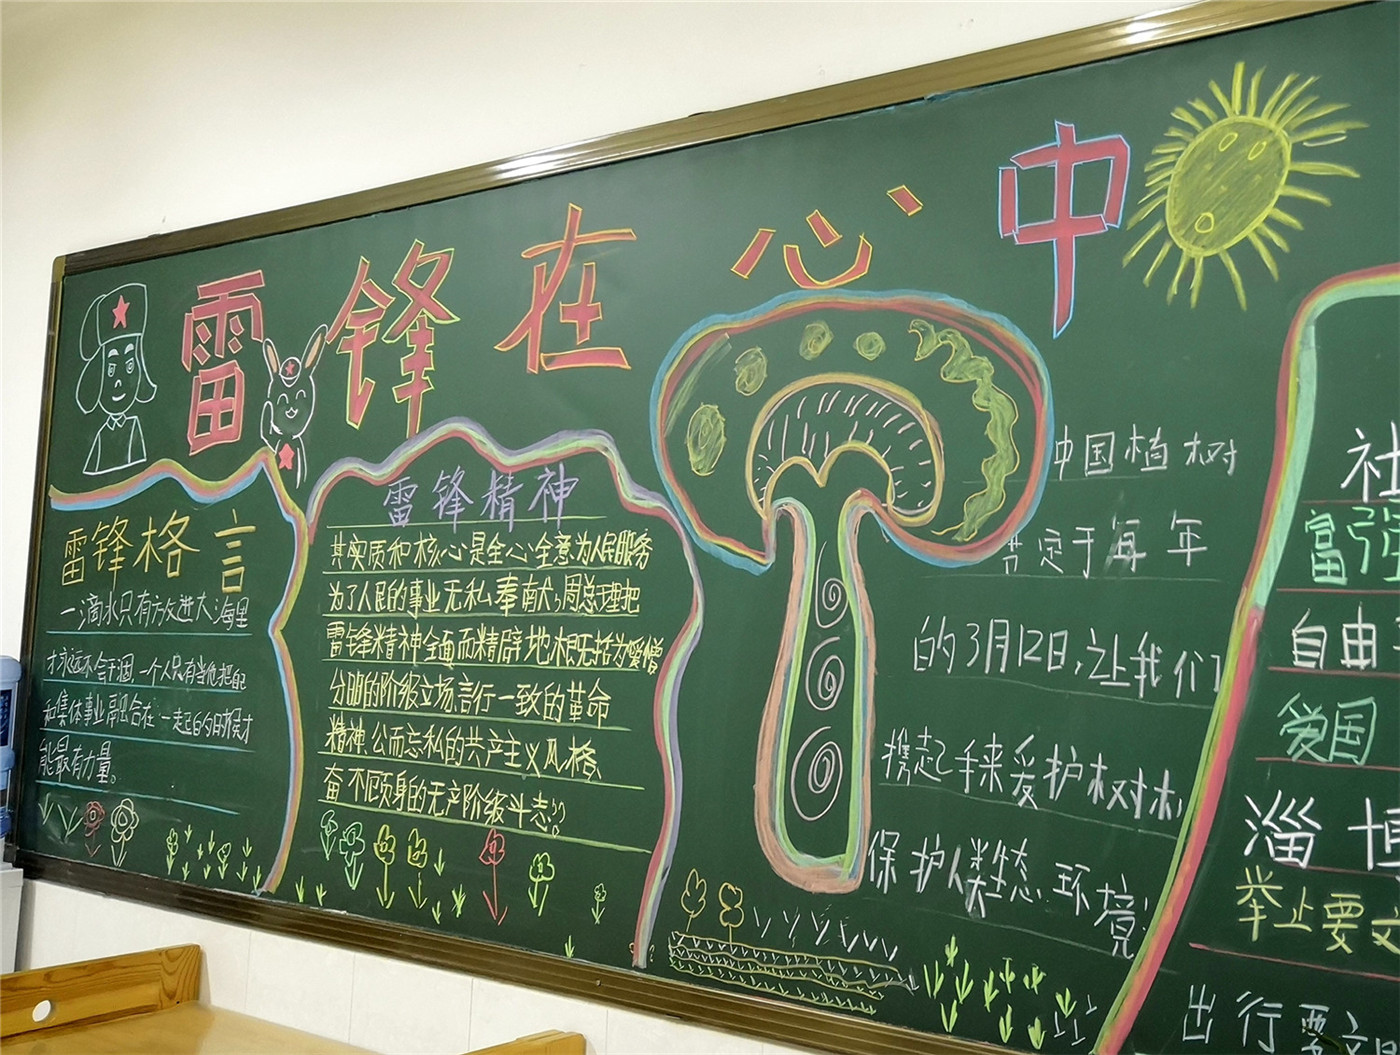 雷锋在心中
雷锋格言
一滴水只有放进大海里
才永远不会干涸,一个人只有当他把自己
和集体事业融合在一起的时候才
能最有力量。
雷锋精神
其实质和核心是全心全意为人民服务
为了人民的事业无私奉献,周总理把
雷锋精神全面而精辟地概括为爱憎
分明的阶级立场,言行一致的革命
精神、公而忘私的共产主义风格、
奋不顾身的无产阶级斗志。
中国植树
节定于每年
的3月12日,让我们
携起手来爱护树木
保护人类生态环境
社
富强
自由
爱国
淄博
举止要文
出行要文明